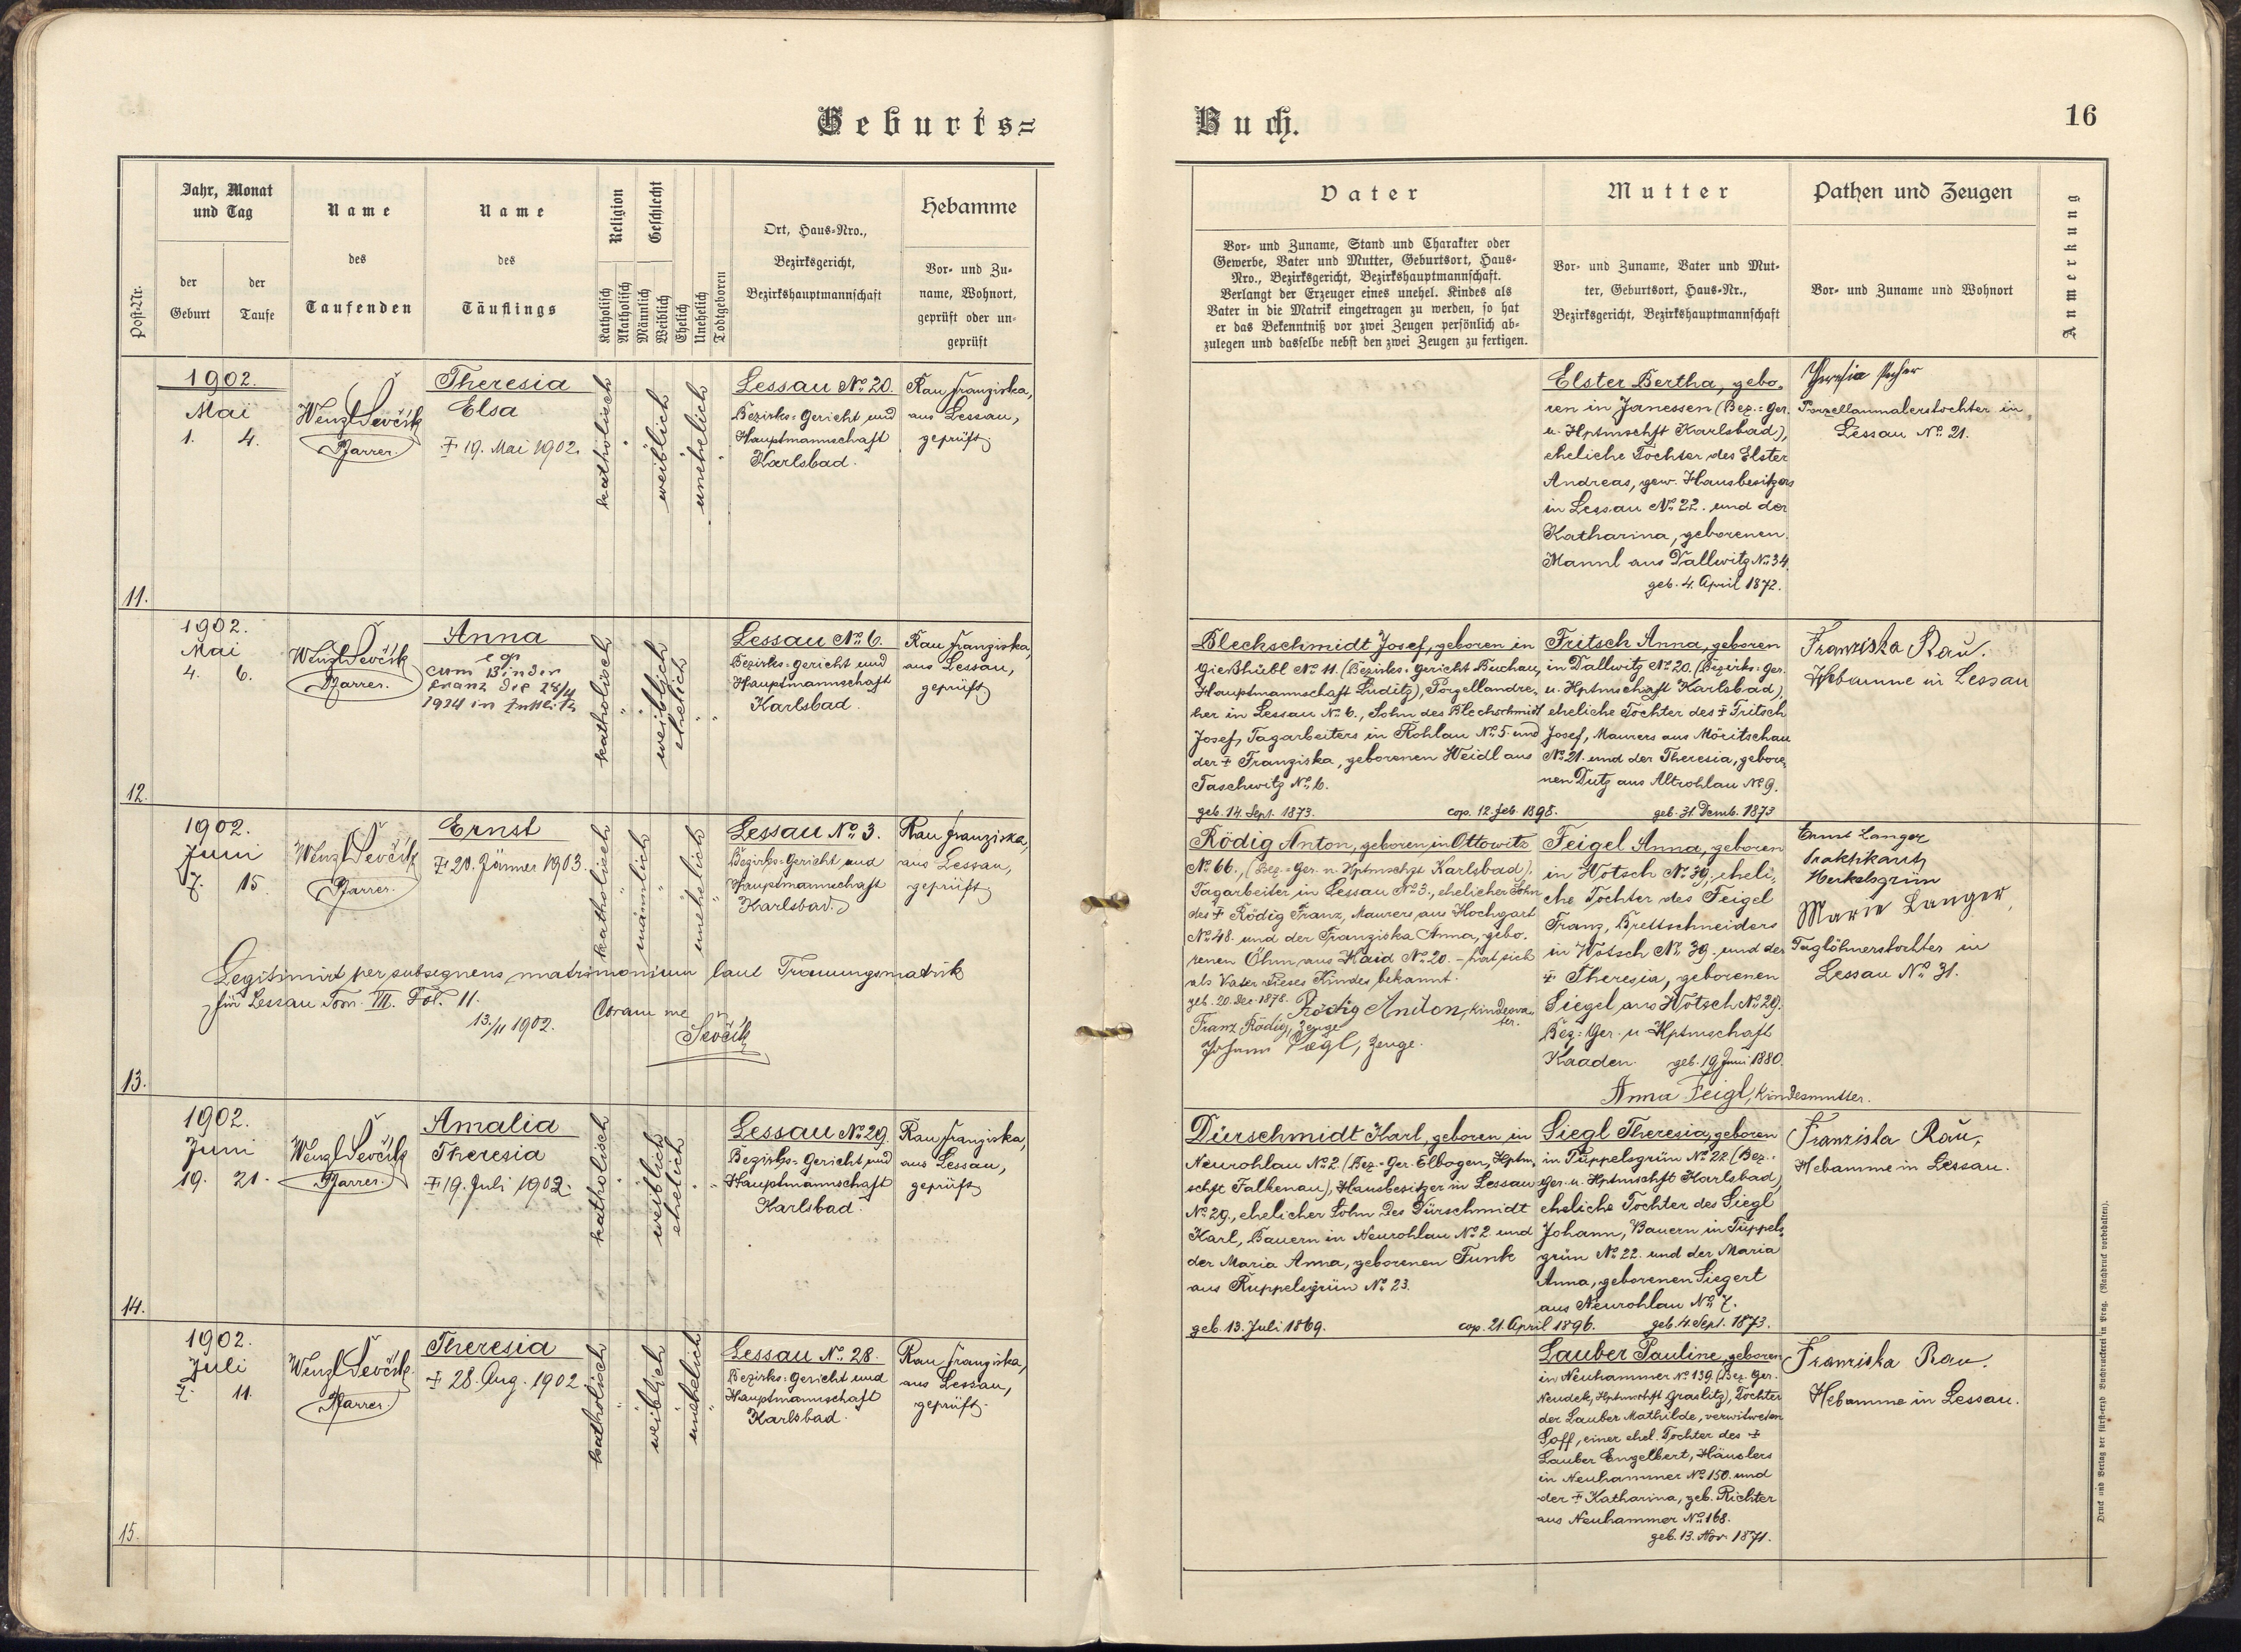 Geburts=
Buch.
16
Post-Nr.
Jahr, Monat
und Tag
der
Geburt
der
Taufe
Name
des
Taufenden
Name
des
Täuflings
Religion
Katholisch
Akatholisch
Geschlecht
Männlich
Weiblich
Ehelich
Unehelich
Todtgeboren
Ort, Haus-Nro.,
Bezirksgericht,
Bezirkshauptmannschaft
Hebamme
Vor- und Zu-
name, Wohnort,
geprüft oder un-
geprüft
Vater
Vor- und Zuname, Stand und Charakter oder
Gewerbe, Vater und Mutter, Geburtsort, Haus-
Nro., Bezirksgericht, Bezirkshauptmannschaft.
Verlangt der Erzeuger eines unehel. Kindes als
Vater in die Matrik eingetragen zu werden, so hat
er das Bekenntniß vor zwei Zeugen persönlich ab-
zulegen und dasselbe nebst den zwei Zeugen zu fertigen.
Mutter
Vor- und Zuname, Vater und Mut-
ter, Geburtsort, Haus-Nr.,
Bezirksgericht, Bezirkshauptmannschaft
Pathen und Zeugen
Vor- und Zuname und Wohnort
Anmerkung
11.
1902.
Mai
1. 4.
Wenzl Ševčík
Pfarrer.
Theresia
Elsa
† 19. Mai 1902.
katholisch
weiblich
unehelich
Lessau No. 20.
Bezirks=Gericht und
Hauptmannschaft
Karlsbad.
Rau Franziska,
aus Lessau,
geprüft
Elster Bertha, gebo-
ren in Janessen (Bez.=Ger.
u. Hptmschft Karlsbad),
eheliche Tochter des Elster
Andreas, gew. Hausbesitzers
in Lessau No. 22. und der
Katharina, geborenen
Mannl aus Dallwitz No. 34.
geb. 4. April 1872.
Theresia Pecher
Porzellanmalerstochter in
Lessau No. 21.
12.
1902.
Mai
4. 6.
Wenzl Ševčík
Pfarrer.
Anna
cop
cum Binder
Franz die 28/4
1924 in
katholisch
weiblich
ehelich
Lessau No. 6.
Bezirks=Gericht und
Hauptmannschaft
Karlsbad.
Rau Franziska,
aus Lessau,
geprüft
Blechschmidt Josef, geboren in
Gießhübl No. 11. (Bezirks=Gericht Buchau,
Hauptmannschaft Luditz), Porzellandre-
her in Lessau No. 6., Sohn des Blechschmidt
Josef, Tagarbeiters in Rohlau No. 5. und
der † Franziska, geborenen Weidl aus
Taschwitz No. 6.
geb. 14. Sept. 1873. cop. 12. Feb. 1898.
Fritsch Anna, geboren
in Dallwitz No. 20. (Bezirks=Ger.
u. Hptmschaft Karlsbad),
eheliche Tochter des † Fritsch
Josef, Maurers aus Möritschau
No. 21. und der Theresia, gebore-
nen Dutz aus Altrohlau No. 9.
geb. 31. Dzmb. 1873
Franziska Rau.
Hebamme in Lessau
13.
1902.
Juni
7. 15.
Wenzl Ševčík
Pfarrer.
Ernst
† 20. Jänner 1903.
katholisch
männlich
unehelich
Lessau No. 3.
Bezirks=Gericht und
Hauptmannschaft
Karlsbad.
Rau Franziska,
aus Lessau,
geprüft
Legitimirt per subsequens matrimonium laut Trauungsmatrik
für Lessau Tom. VII. Fol. 11.
13./11 1902.
Coram me
Ševčík
Rödig Anton, geboren in Ottowitz
No. 66., (Bez.=Ger. u. Hptmschft Karlsbad),
Tagarbeiter in Lessau No. 3., ehelicher Sohn
des † Rödig Franz, Maurers aus Hochgart
No. 48. und der Franziska Anna, gebo-
renen Öhm, aus Haid No. 20. - hat sich
als Vater dieses Kindes bekannt.
geb. 20. Dec. 1878. Rödig Anton, Kindesva-
ter.
Franz Rödig, Zeuge
Johann Vogl, Zeuge.
Feigel Anna, geboren
in Wotsch No. 39., eheli-
che Tochter des Feigel
Franz, Brettschneiders
in Wotsch No. 39. und der
† Theresia, geborenen
Siegel aus Wotsch No. 29.
Bez.=Ger. u. Hptmschaft
Kaaden. geb. 19. Juni 1880.
Anna Feigl, Kindesmutter.
Ernst Langer
Praktikant
Merkelsgrün
Marie Langer,
Taglöhnerstochter in
Lessau No. 31.
14.
1902.
Juni
19. 21.
Wenzl Ševčík
Pfarrer.
Amalia
Theresia
† 19. Juli 1902.
katholisch
weiblich
ehelich
Lessau No. 29.
Bezirks=Gericht und
Hauptmannschaft
Karlsbad.
Rau Franziska,
aus Lessau,
geprüft
Dürschmidt Karl, geboren in
Neurohlau No. 2. (Bez.=Ger. Elbogen, Hptm-
schft Falkenau), Hausbesitzer in Lessau
No. 29., ehelicher Sohn des Dürschmidt
Karl, Bauern in Neurohlau No. 2. und
der Maria Anna, geborenen Funk
aus Ruppelsgrün No. 23.
geb. 13. Juli 1869. cop. 21. April 1896.
Siegl Theresia, geboren
in Tüppelsgrün No. 22. (Bez.=
Ger. u. Hptmschft Karlsbad)
eheliche Tochter des Siegl
Johann, Bauern in Tüppels-
grün No. 22. und der Maria
Anna, geborenen Siegert
aus Neurohlau No. 7.
geb. 4. Sept. 1873.
Franziska Rau,
Hebamme in Lessau.
15.
1902.
Juli
7. 11.
Wenzl Ševčík
Pfarrer.
Theresia
† 28. Aug. 1902
katholisch
weiblich
unehelich
Lessau No. 28.
Bezirks=Gericht und
Hauptmannschaft
Karlsbad.
Rau Franziska,
aus Lessau,
geprüft.
Lauber Pauline, geboren
in Neuhammer No. 139. (Bez. Ger.
Neudek, Hptmschft Graslitz), Tochter
der Lauber Mathilde, verwitweten
Soff, einer ehel. Tochter des †
Lauber Engelbert, Häuslers
in Neuhammer No. 150. und
der † Katharina, geb. Richter
aus Neuhammer No. 168.
geb. 13. Nov. 1871.
Franziska Rau.
Hebamme in Lessau.
Druck und Verlag der fürst-erzb Buchdruckerei in Prag. (Nachdruck vorbehalten).